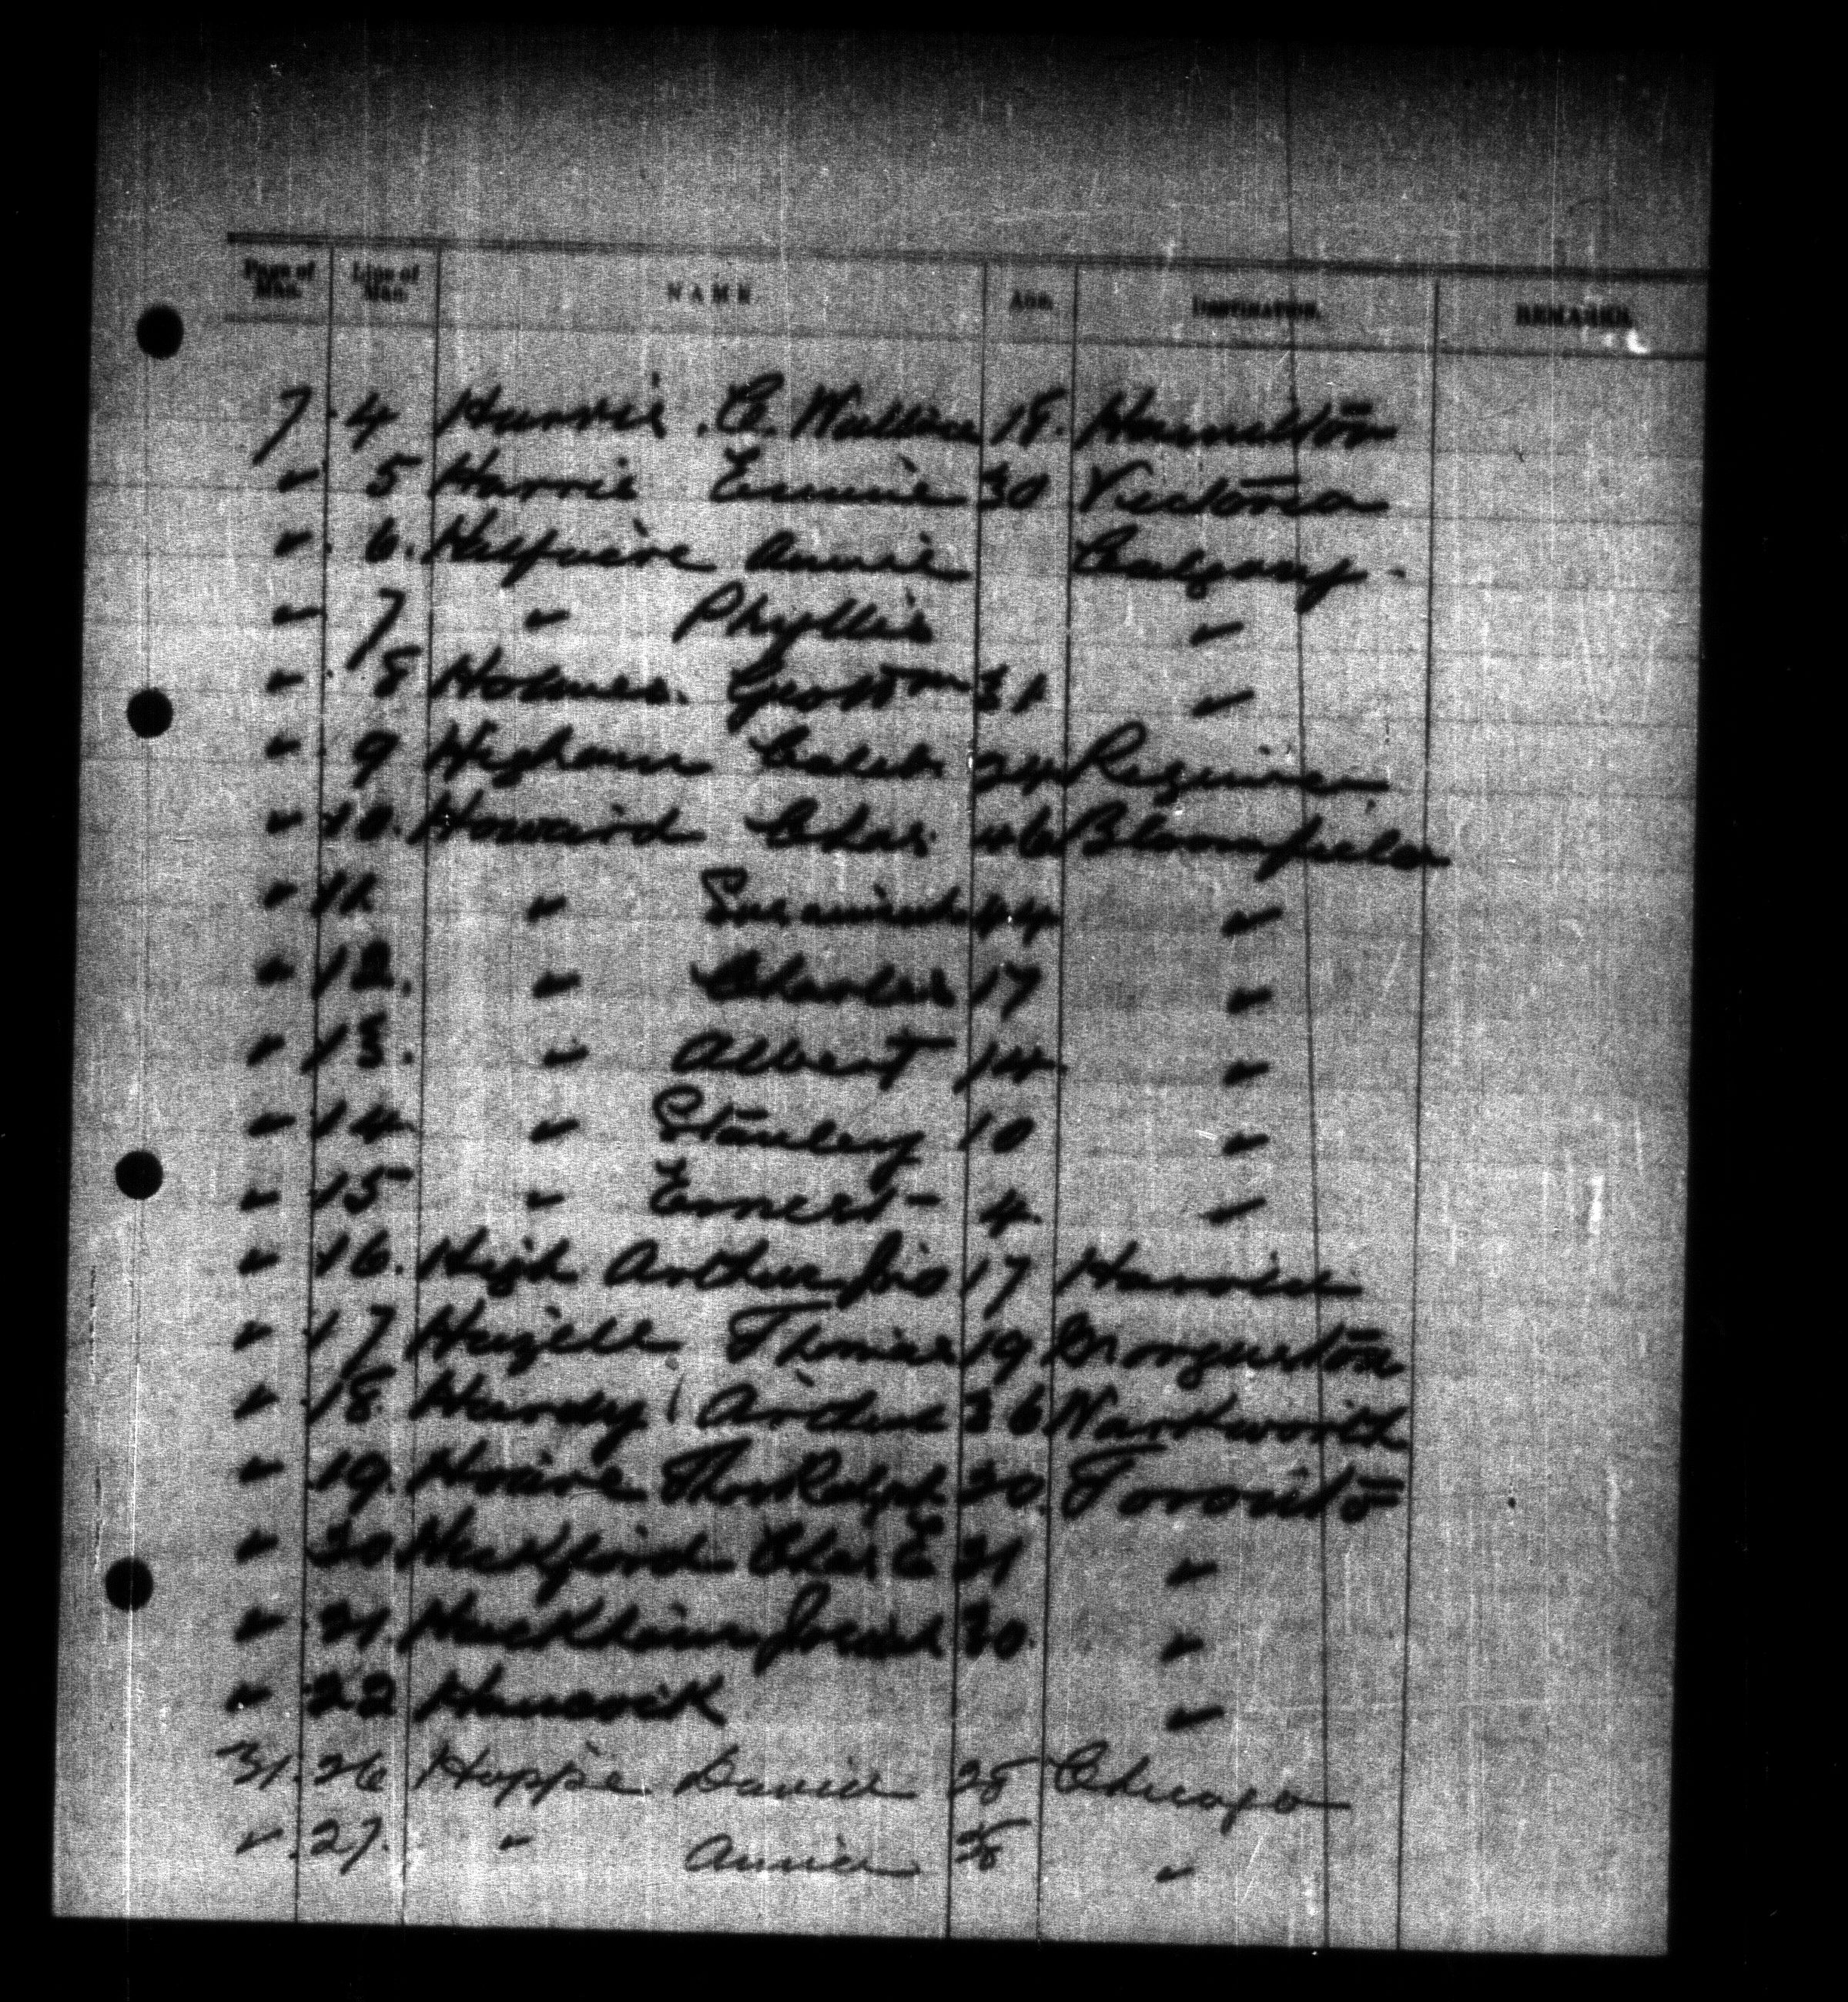 Page of Man. Line of Man. NAME Age. Destination. REMARKS
7 4 Harris C. Wallace 18 Hamilton
✓ 5 Harris Emmie 30 Victoria
✓ 6. Annie Calgary
✓ 7 ✓ Phyllis ✓
✓ 8 Holmes. Geo Wm 31 ✓
✓ 9 Higham Caleb 24 Regina
✓ 10. Howard Chas 46 Bloomfield
✓ 11 ✓ Susannah 44 ✓
✓ 12. ✓ Charles 17 ✓
✓ 13. ✓ Albert 14 ✓
✓ 14 ✓ Stanley 10 ✓
✓ 15 ✓ Ernest 4 ✓
✓ 16. High Arthur Jno 17
✓ 17 Hazell Thomas 19
✓ 18. Hardy Arthur 36 Warkworth
✓ 19. Hoare Thos Ralph 20 Toronto
✓ 20 Heckford Chas E 21 ✓
✓ 21. 20 ✓
✓ 22 Hancock ✓
31. 26 Hoppe David 28 Chicago
✓ 27. ✓ Annie ✓